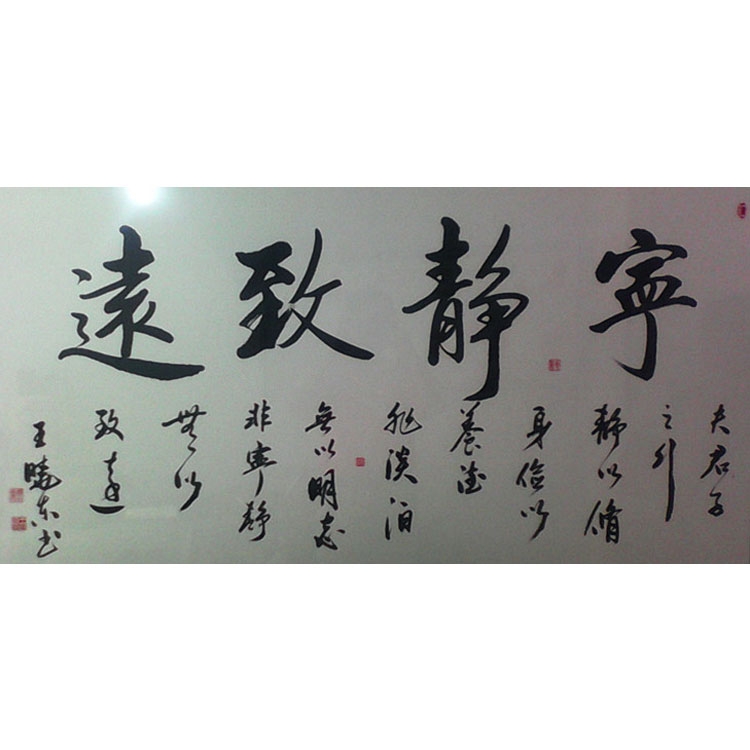 寧靜致遠
夫君子
之行
靜以脩
身儉以
養德
非淡泊
無以明志
非寧靜
無以
致遠
王曉東书